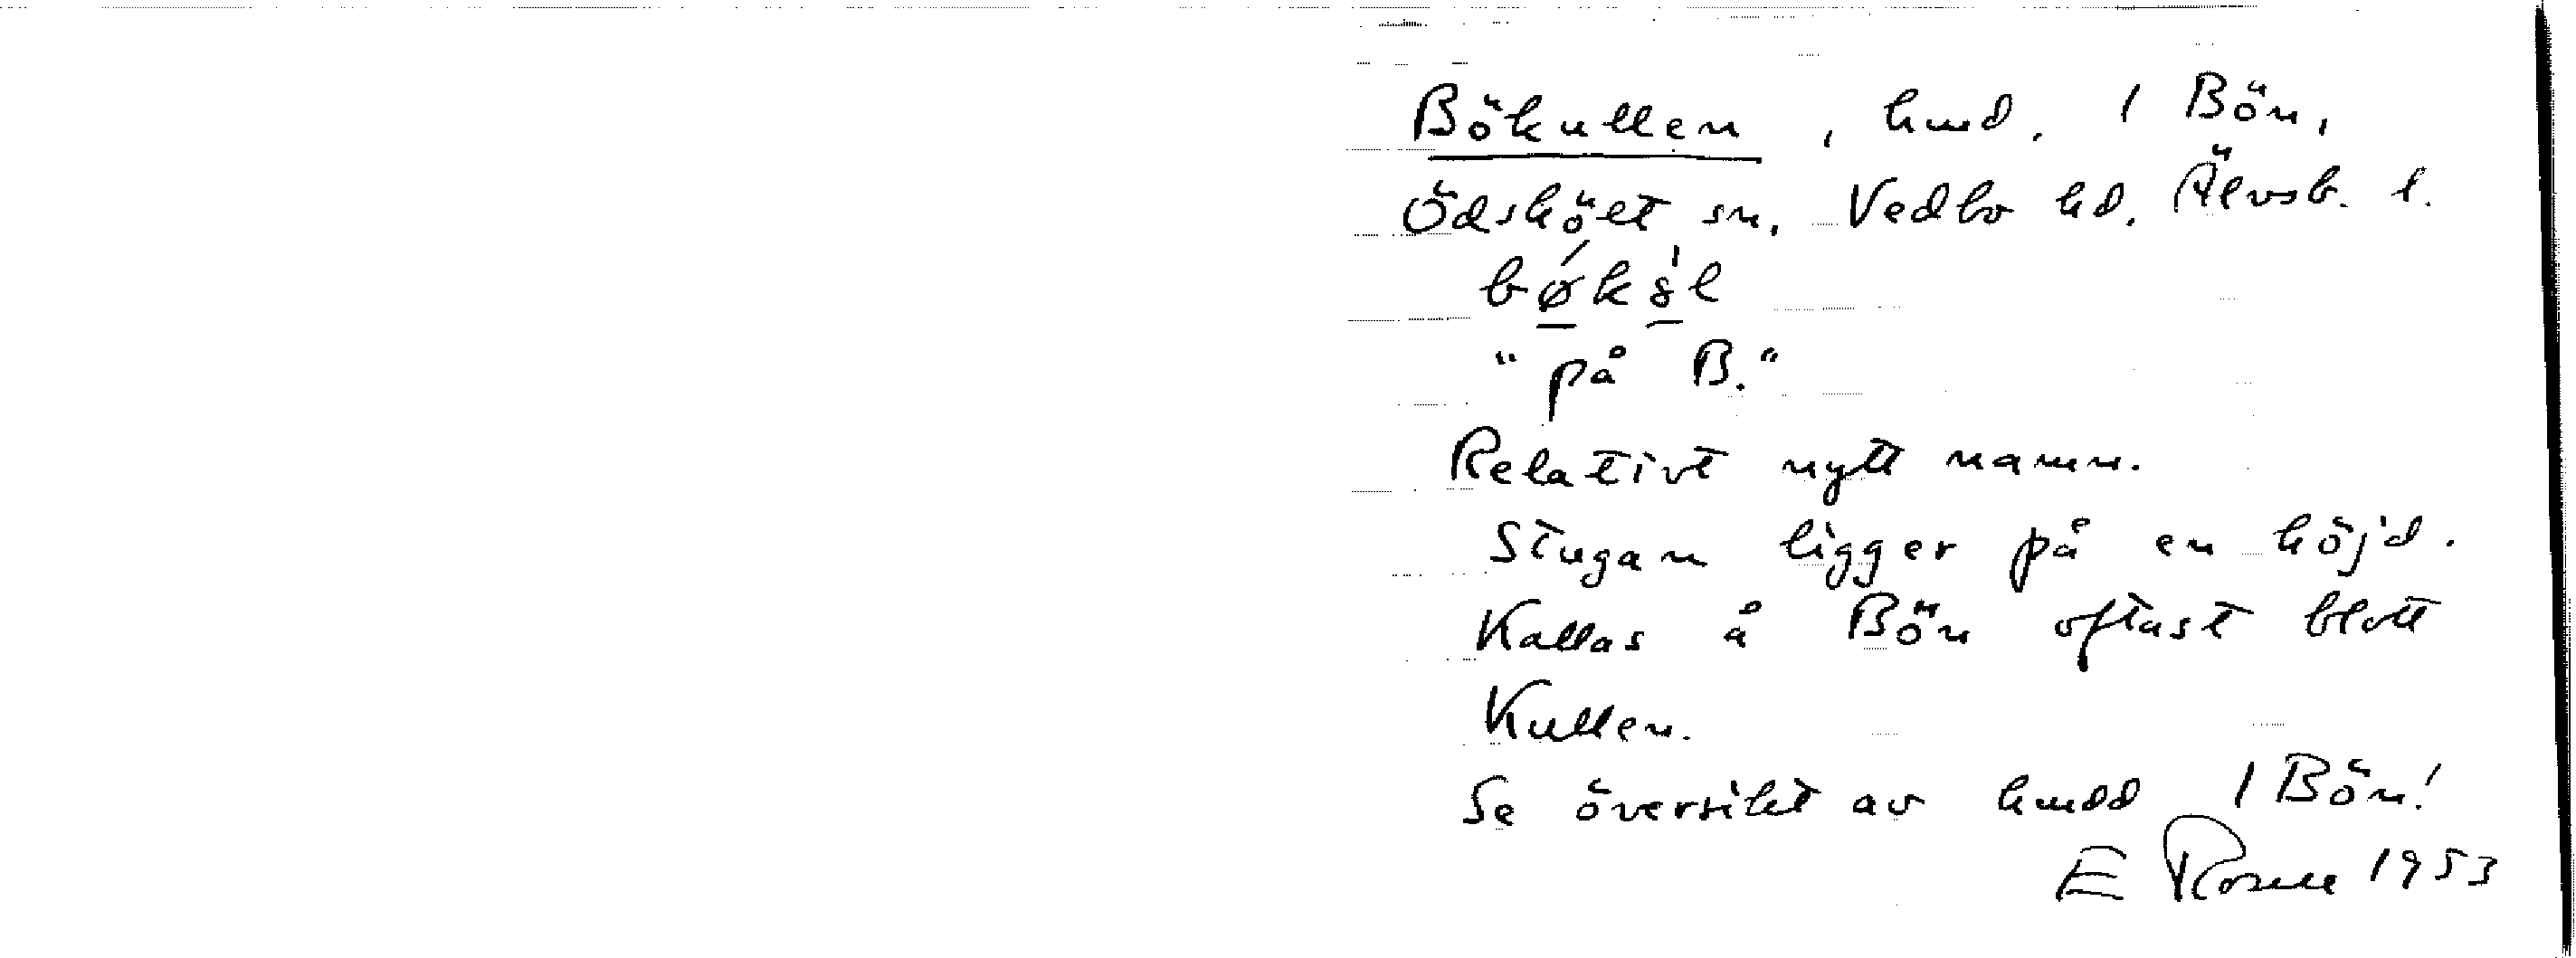 Bökullen, hmd. 1 Bön,
Ödsköít sn. Vedbo hd. Älvsb. l.
"på B."
Relativt nytt namn.
Stugan ligger på en höjd.
Kallas å Bön oftast blott
Kullen.
Se översikt av hmdd 1 Bön!
E 1953